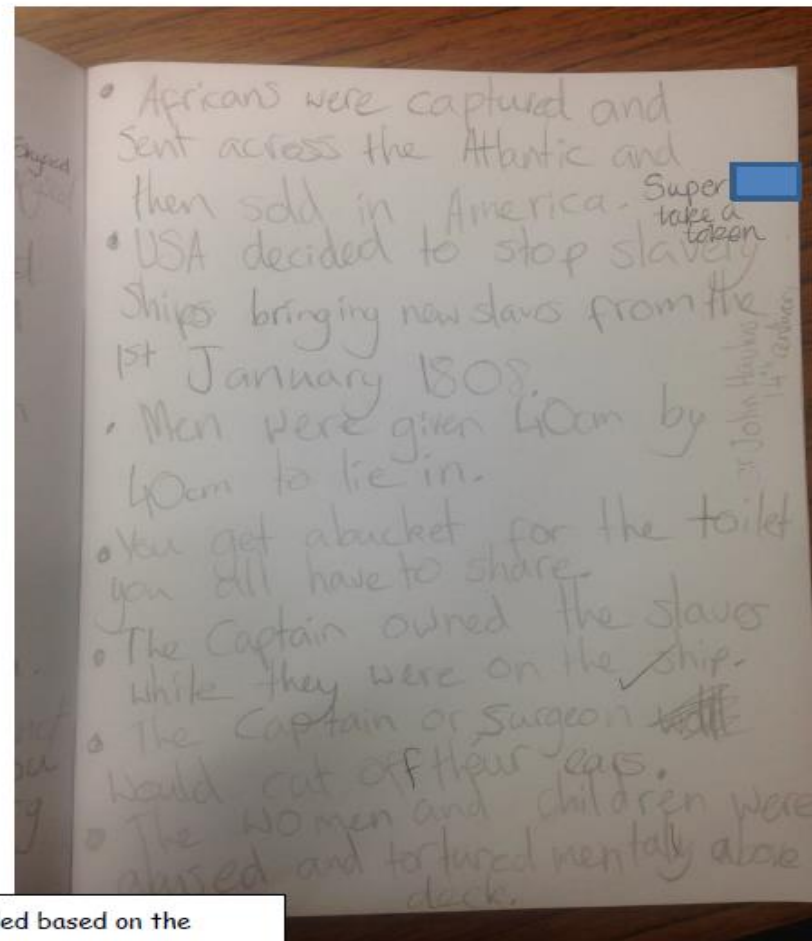 • Africans were captured and
Sent across the Atlantic and
then sold in America.
Super
take a
token
• USA decided to stop slavery
Ships bringing new slaves from the
1st January 1808.
• Men were given 40cm by
40cm to lie in.
• You get abucket for the toilet
you all have to share.
• The Captain owned the slaves
while they were on the ship.
• The Captain or Surgeon
would cut off their ears.
• The women and children were
abused and tortured mentally above
deck.
Sir John Hawkins
14th
ed based on the